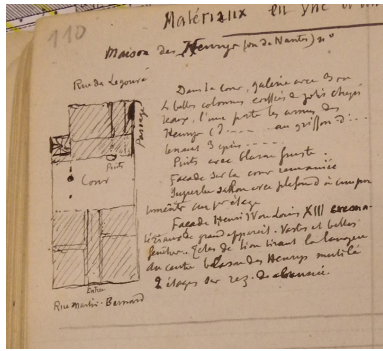 110
Matériaux en vue d'un
Maison des Henrys (ou de Nantes) n°
Rue de Legouvé
Passage
Puits
Cour
Entrée
Rue Martin-Bernard
Dans la cour, galerie avec 3 ou
4 belles colonnes coiffées de jolis chapi
teaux, l'une porte les armes des
Henrys (d'----- au griffon d'---
tenant 3 épis -----
Puits avec blason fruste.
Façade sur la cour remaniée
Superbe salon avec plafond à compar
timents au 1er étage
Façade Henri IV ou Louis XIII
grand appareil. Vastes et belles
fenêtres. Têtes de lion tirant la langue
au centre blason des Henrys mutilé
2 étages sur rez-de-chaussée.